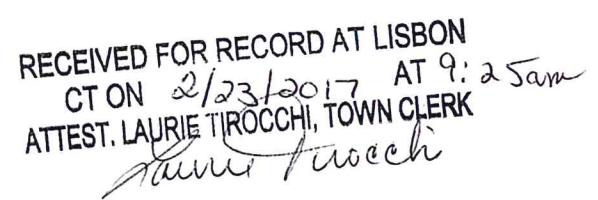 RECEIVED FOR RECORD AT LISBON
CT ON 2/23/2017 AT 9:25am
ATTEST. LAURIE TIROCCHI, TOWN CLERK
Laurie Tirocchi